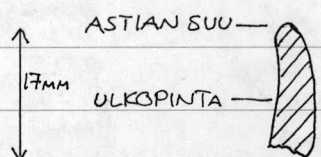 ASTIAN SUU
17MM
ULKOPINTA